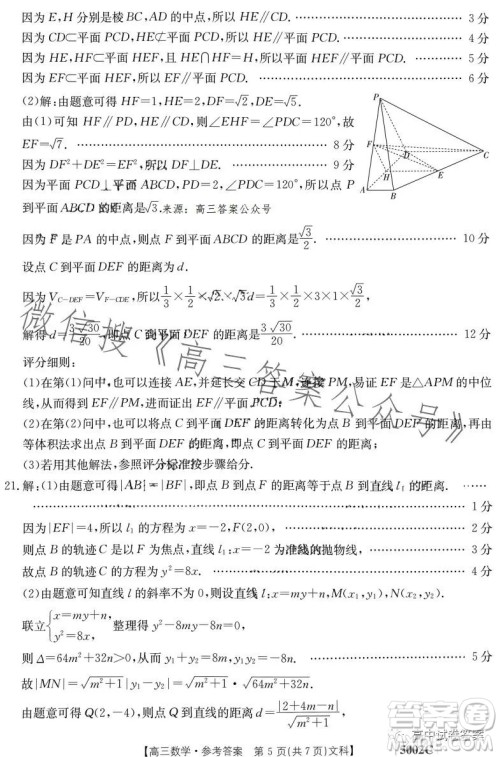 因为 H,E 分别是棱 BC,AD 的中点,所以 HE∥CD. ………… 3 分
因为 CD⊂平面 PCD,HE⊄平面 PCD,所以 HE∥平面 PCD. ………… 4 分
因为 HE,HF⊂平面 HEF,且 HE∩HF=H,所以平面 HEF∥平面 PCD. ………… 5 分
因为 EF⊂平面 HEF,所以 EF∥平面 PCD. ………… 6 分
(2)解:由题意可得 HF=1,HE=2,DF=√2,DE=√5.
由(1)可知 HF∥PD,HE∥DC,则∠EHF=∠PDC=120°,故
EF=√7. ………… 8 分
因为 DF²+DE²=EF²,所以 DF⊥DE. ………… 9 分
因为平面 PCD⊥平面 ABCD,PD=2,∠PDC=120°,所以点 P
到平面 ABCD 的距离是√3. 来源:高三答案公众号
P
F
D
C
H
E
A
B
因为 F 是 PA 的中点,则点 F 到平面 ABCD 的距离是 √3/2. ………… 10 分
设点 C 到平面 DEF 的距离为 d.
解得 d=3√30/20,即点 C 到平面 DEF 的距离是 3√30/20. ………… 12 分
评分细则:
(1)在第(1)问中,也可以连接 AE,并延长交 CD 于 M,连接 PM,易证 EF 是△APM 的中位
线,从而得到 EF∥PM,进而证出 EF∥平面 PCD;
(2)在第(2)问中,可以将点 C 到平面 DEF 的距离转化为点 B 到平面 DEF 的距离,再由
等体积法求出点 B 到平面 DEF 的距离;
(3)若用其他解法,参照评分标准按步骤给分.
21. 解:(1)由题意可得|AB|=|BF|,即点 B 到点 F 的距离等于点 B 到直线 l₁ 的距离.
………… 1 分
因为|EF|=4,所以 l₁ 的方程为 x=-2,F(2,0). ………… 2 分
则点 B 的轨迹 C 是以 F 为焦点,直线 l₁:x=-2 为准线的抛物线, ………… 3 分
故点 B 的轨迹 C 的方程为 y²=8x. ………… 4 分
(2)由题意可知直线 l 的斜率不为 0,则设直线 l:x=my+n,M(x₁,y₁),N(x₂,y₂).
联立{x=my+n, y²=8x, 整理得 y²-8my-8n=0,
则 Δ=64m²+32n>0,从而 y₁+y₂=8m,y₁y₂=-8n. ………… 5 分
故|MN|=√(m²+1)|y₁-y₂|=√(m²+1)·√(64m²+32n). ………… 6 分
由题意可得 Q(2,-4),则点 Q 到直线 l 的距离 d=|2+4m-n|/√(m²+1),
【高三数学·参考答案 第 5 页(共 7 页)文科】
5002C
微信搜《高三答案公众号》
高中试卷答案